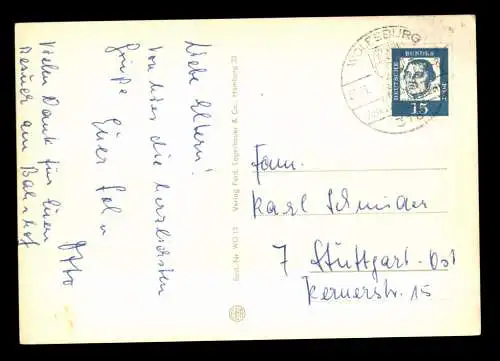 Liebe Eltern!
von hier die herzlichsten
Grüße Euer Sohn
Otto
Vielen Dank für Euren
am Bahnhof
Verlag Ferd. Lagerbauer & Co., Hamburg 23
Best.-Nr. WO 13
WOLFSBURG
DEUTSCHE BUNDESPOST
15
Fam.
Karl Schnider
7 Stuttgart-Ost
Kernerstr. 15